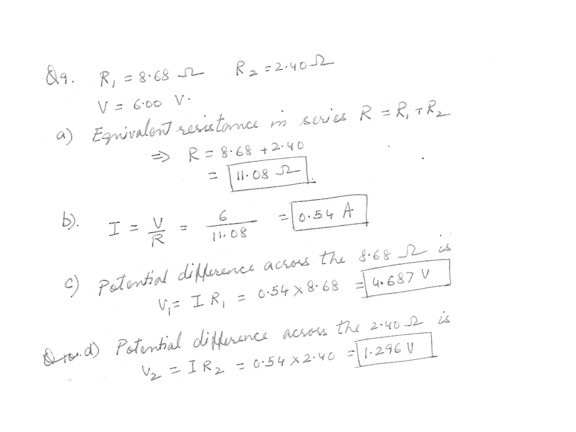 Q9. R₁ = 8.68 Ω R₂ = 2.40 Ω
V = 6.00 V.
a) Equivalent resistance in series R = R₁ + R₂
⇒ R = 8.68 + 2.40
= 11.08 Ω.
b). I = V/R = 6/11.08 = 0.54 A
c) Potential difference across the 8.68 Ω is
V₁ = I R₁ = 0.54 × 8.68 = 4.687 V
d) Potential difference across the 2.40 Ω is
V₂ = I R₂ = 0.54 × 2.40 = 1.296 V